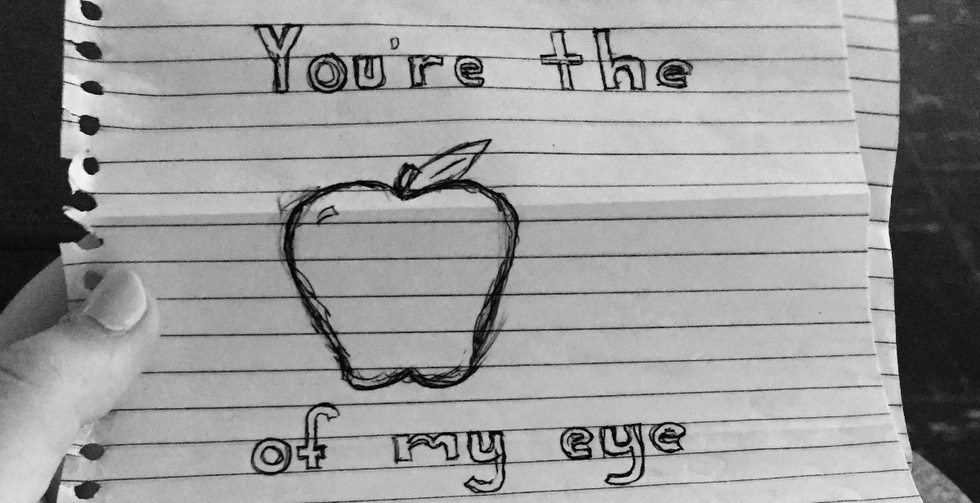 You're the
of my eye